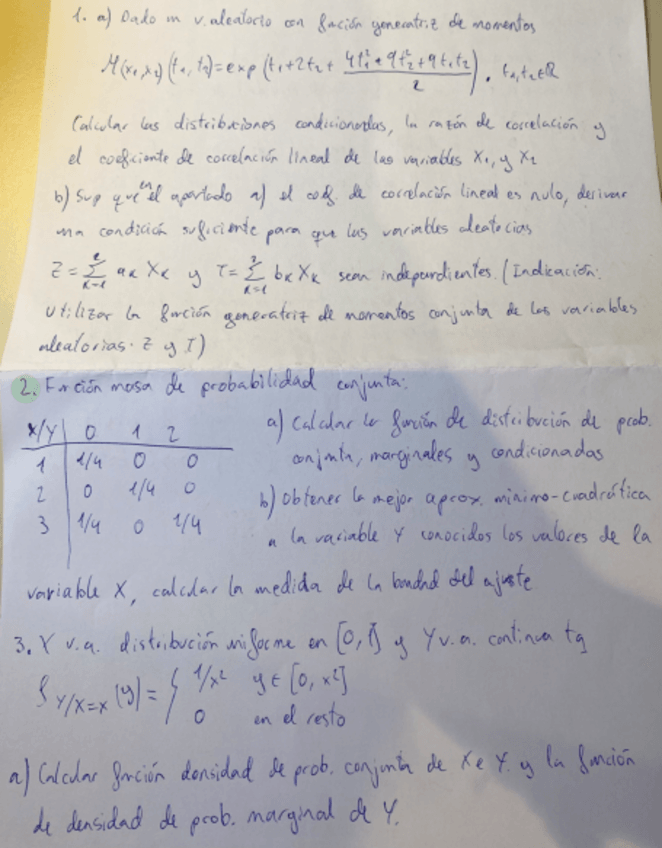 1. a) Dado un v. aleatorio con función generatriz de momentos
M(x₁,x₂)(t₁, t₂)=exp (t₁+2t₂+ (4t₁²+9t₂²+9t₁t₂)/2). t₁,t₂∈ℝ
Calcular las distribuciones condicionadas, la razón de correlación y
el coeficiente de correlación lineal de las variables X₁, y X₂
b) Sup que en el apartado a) el coef. de correlación lineal es nulo, derivar
una condición suficiente para que las variables aleatorias
Z=∑ aₖ Xₖ y T=∑ bₖ Xₖ sean independientes. (Indicación:
Utilizar la función generatriz de momentos conjunta de las variables
aleatorias. Z y T)
2. Función masa de probabilidad conjunta:
X/Y 0 1 2
1 1/4 0 0
2 0 1/4 0
3 1/4 0 1/4
a) Calcular la función de distribución de prob.
conjunta, marginales y condicionadas
b) Obtener la mejor aprox. mínimo-cuadrática
a la variable Y conocidos los valores de la
variable X, calcular la medida de la bondad del ajuste
3. X v.a. distribución uniforme en [0,1] y Y v.a. continua tq
f Y/X=x (y) = { 1/x² y ∈ [0, x²]
0 en el resto
a) Calcular función densidad de prob. conjunta de X e Y. y la función
de densidad de prob. marginal de Y.